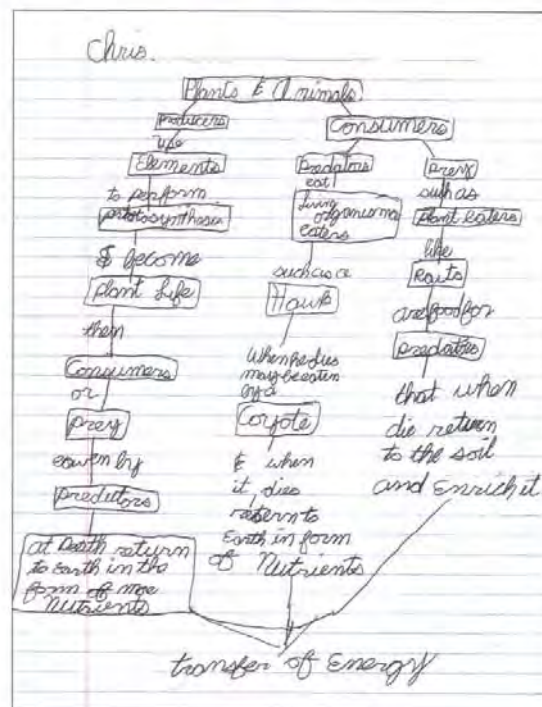 Chris.
Plants & Animals
Producers
use
Elements
to perform
photosynthesis
& become
Plant Life
then
Consumers
or
Prey
eaven by
Predutors
at Death return
to Earth in the
form of more
Nutrients
Consumers
Predators
eat
living
organisms
eaters
such as a
Hawk
When he dies
may be eaten
by a
Coyote
& when
it, dies
retern to
Earth in form
of Nutrients
prey
such as
plant eaters
like
are food for
predators
that when
die return
to the soil
and Enrich it
transfer of Energy